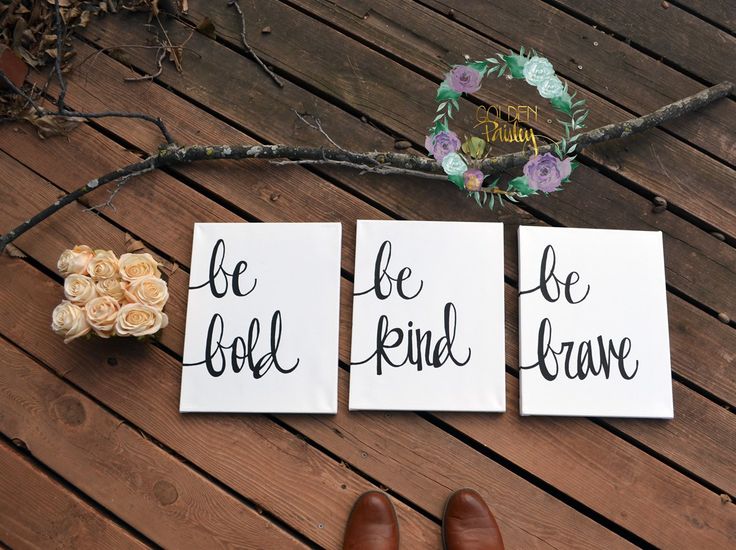 GOLDEN
Paisley
be
bold
be
kind
be
brave